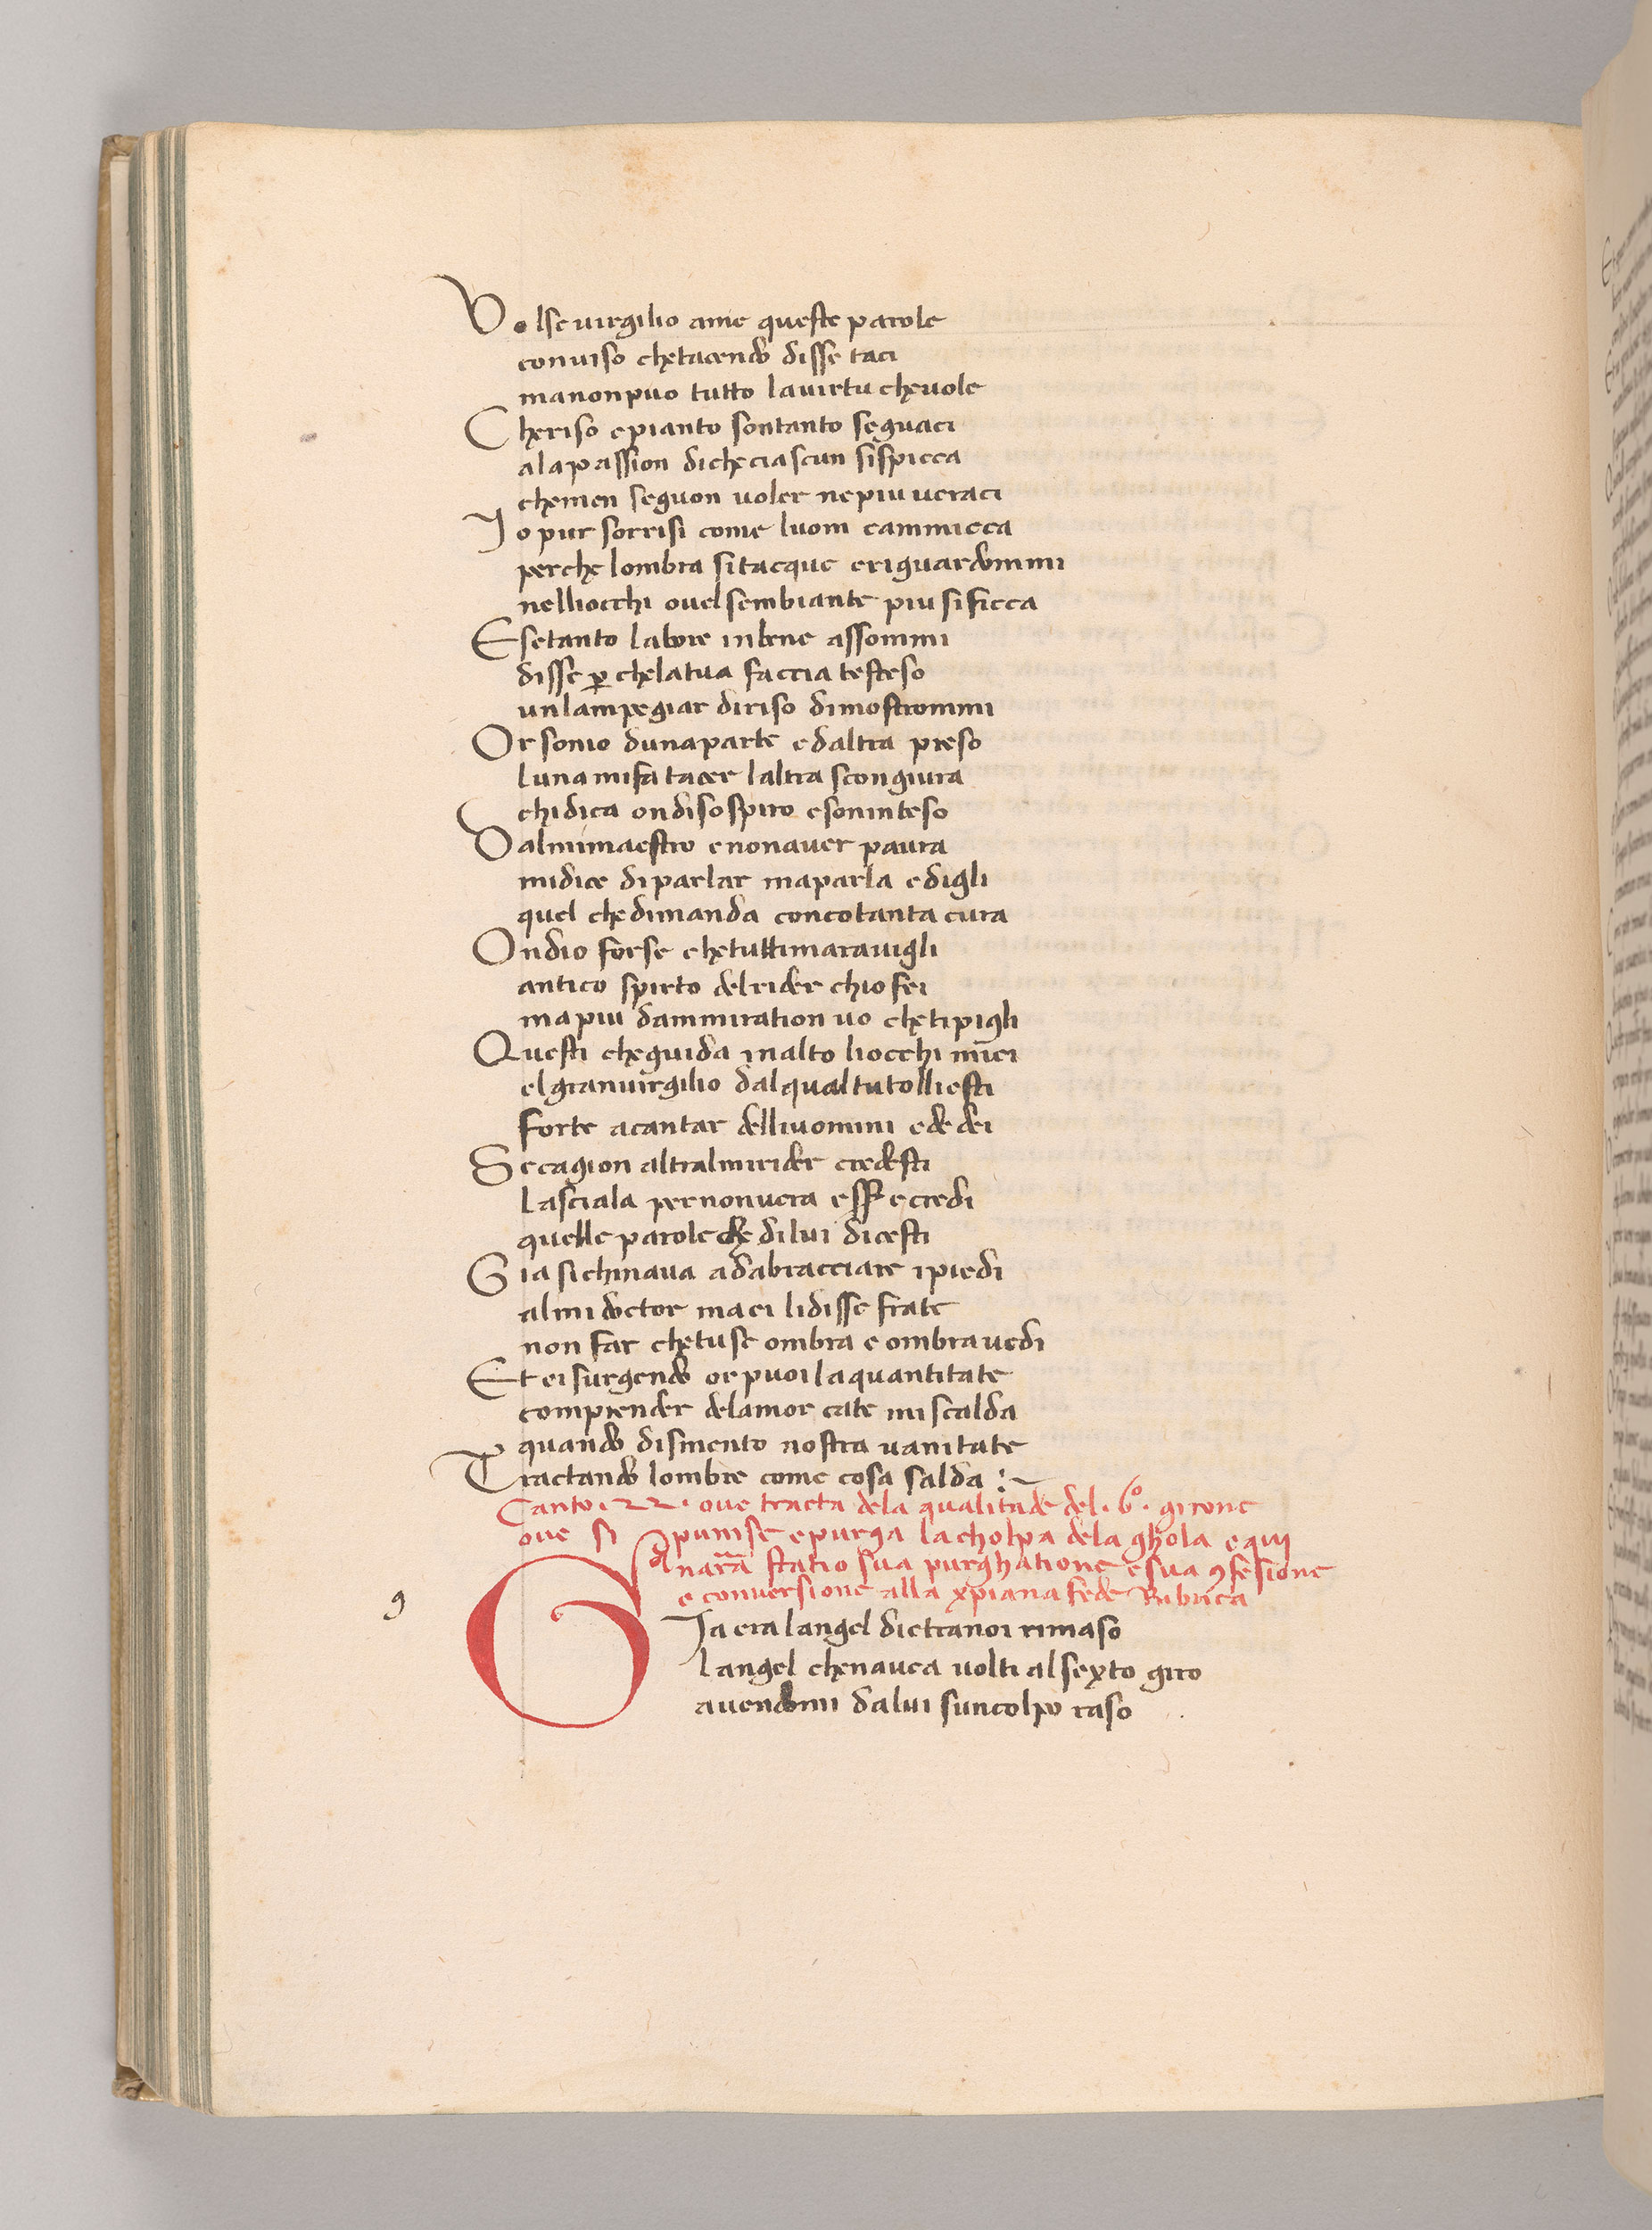 Volse uirgilio ame queste parole
conuiso chetacendo disse taci
manonpuo tutto lauirtu cheuole
Cheriso epianto sontanto seguaci
alapassion dicheciascun sispicca
chemen seguon uoler nepiu ueraci
Io pur sorrisi come luom cammicca
perche lombra sitacque eriguardommi
nelliocchi ouelsembiante piu sificca
Esetanto labore inbene assommi
disse ꝑchelatua faccia testeso
unlampegiar diriso dimostrommi
Or sonio dunaparte edaltra preso
luna mifa tacer laltra scongiura
chidica ondisospiro esoninteso
Dalmimaestro enonauer paura
midice diparlar maparla edigli
quel chedimanda concotanta cura
Ondio forse chetuttimarauigli
antico spirto delrider chiofei
mapiu dammiration uo chetipigli
Questi cheguida inalto liocchi miei
elgranuirgilio dalqualtutolliesti
forte acantar delliuomini ededei
Secagion altralmirider credesti
lasciala pernonuera essẽ ecredi
quelle parole che dilui dicesti
Gia sichinaua adabracciare ipiedi
almi doctor maei lidisse frate
non far chetuse ombra e ombrauedi
Et ei surgendo or puoilaquantitate
comprender delamor cate miscalda
quando dismento nostra uanitate
Tractando lombre come cosa salda :~
Canto. 22. oue tracta dela qualitade del. 6º. girone
oue si punise epurga lacholpa dela ghola equi
narã statio sua purghatione esua ꝯfesione
e conuersione alla xpiana fede Rubrica
g
GIa era langel dietranoi rimaso
langel chenauea uolti alsexto giro
auendomi dalui suncolpo raso